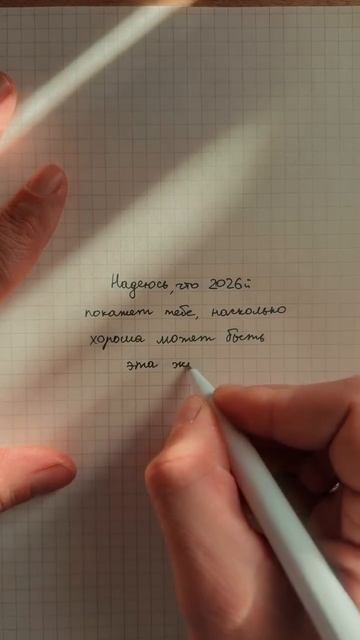 Надеюсь, что 2026й
покажет тебе, насколько
хороша может быть
эта жи